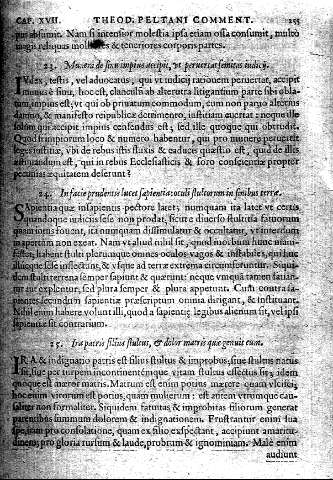 CAP. XVII. THEOD. PELTANI COMMENT. 255
pus absumit. Nam si intensior molestia ipsa etiam ossa consumit, multò
magis reliquas molliores & teneriores corporis partes.
23. Munera de sinu impius accipit, vt peruertat semitas iudicij.
IVdex, testis, vel aduocatus, qui vt iudicij rationem peruertat, accipit
munera è sinu, hoc est, clanculū ab alterutra litigantium parte sibi obla-
tum, impius est; vt qui ob priuatum commodum, cum non paruo alterius
damno, & manifesto reipublicæ detrimento, iustitiam auertat: neque ille
solùm qui accipit impius censendus est; sed ille quoque qui obtrudit.
Quod si impiorum loco & numero habentur, qui pro munere peruertit
leges iustitiæ, vbi de rebus istis fluxis & caducis quæstio est, quid de illis
æstimandum est, qui in rebus Ecclesiasticis & foro conscientiæ propter
pecunias æquitatem deserunt?
24. In facie prudentis lucet sapientia: oculi stultorum in finibus terræ.
SApientia quæ in sapientis pectore latet; numquam ita latet vt certis
quandoque indicijs sese non prodat, sicut è diuerso stultitia fatuorum
quam intus fouent, ita numquam dissimulatur & occultatur, vt interdum
in apertum non exeat. Nam vt aliud nihil sit, quod morbum hunc mani-
festet; habent stulti plerumque omnes oculos vagos & instabiles, qui huc
illucque sese inflectant, & vsque ad terræ extrema circumferuntur. Siqui-
dem stulti terrena semper sapiunt & quærunt: neque vnquā tamen satian-
tur aut explentur, sed plura semper & plura appetunt. Cùm contra sa-
pientes secundùm sapientiæ præscriptum omnia dirigant, & instituant.
Nihil enim habere volunt illi, quod à sapientiæ legibus alienum sit, vel ipsi
sapientiæ sit contrarium.
25. Ira patris filius stultus, & dolor matris quæ genuit eum.
IRA & indignatio patris est filius stultus & improbus, siue stultus natus
sit, siue per turpem incontinentémque vitam stultus effectus sit; idem
quoque est mœror matris. Matrum est enim potius mœrere quàm vlcisci;
hoc enim virorum est potius, quàm mulierum: est autem vtrumque cau-
saliter non formaliter. Siquidem fatuitas & improbitas filiorum generat
parentibus summum dolorem & indignationem. Frustrantur enim sua
spe, nam pro consolatione, quam ex filio exspectant, accipiunt amaritu-
dinem; pro gloria rursum & laude, probrum & ignominiam. Malè enim
audiunt